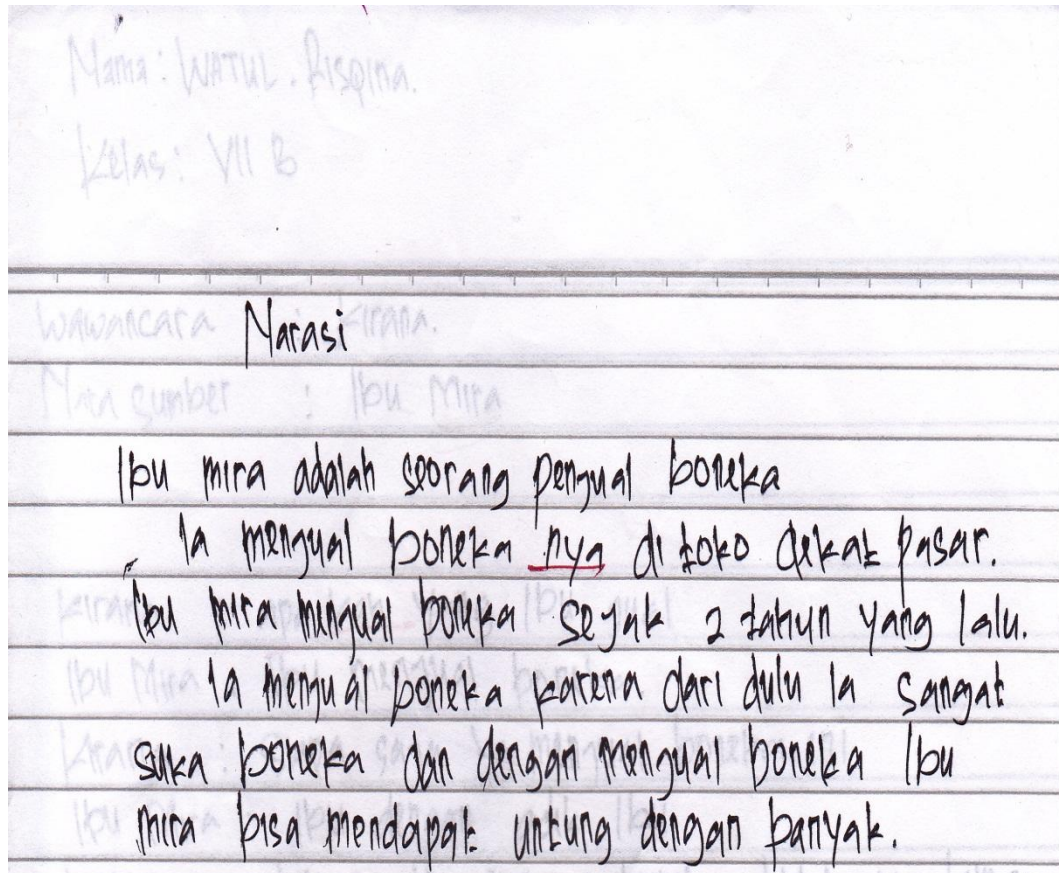 Nama : WATUL . Risqina.
Kelas : VII B
Wawancara Kirana.
Narasi
Nara sumber : Ibu Mira
Ibu mira adalah seorang penjual boneka
Ia menjual boneka nya di toko dekat pasar.
Ibu mira menjual boneka sejak 2 tahun yang lalu.
Ia menjual boneka karena dari dulu Ia sangat
suka boneka dan dengan menjual boneka Ibu
mira bisa mendapat untung dengan banyak.